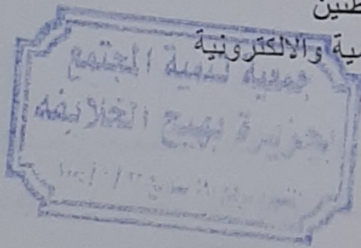 طنين
مية والالكترونية
جمعية تنمية المجتمع
بجزيرة بهيج الخلايفه